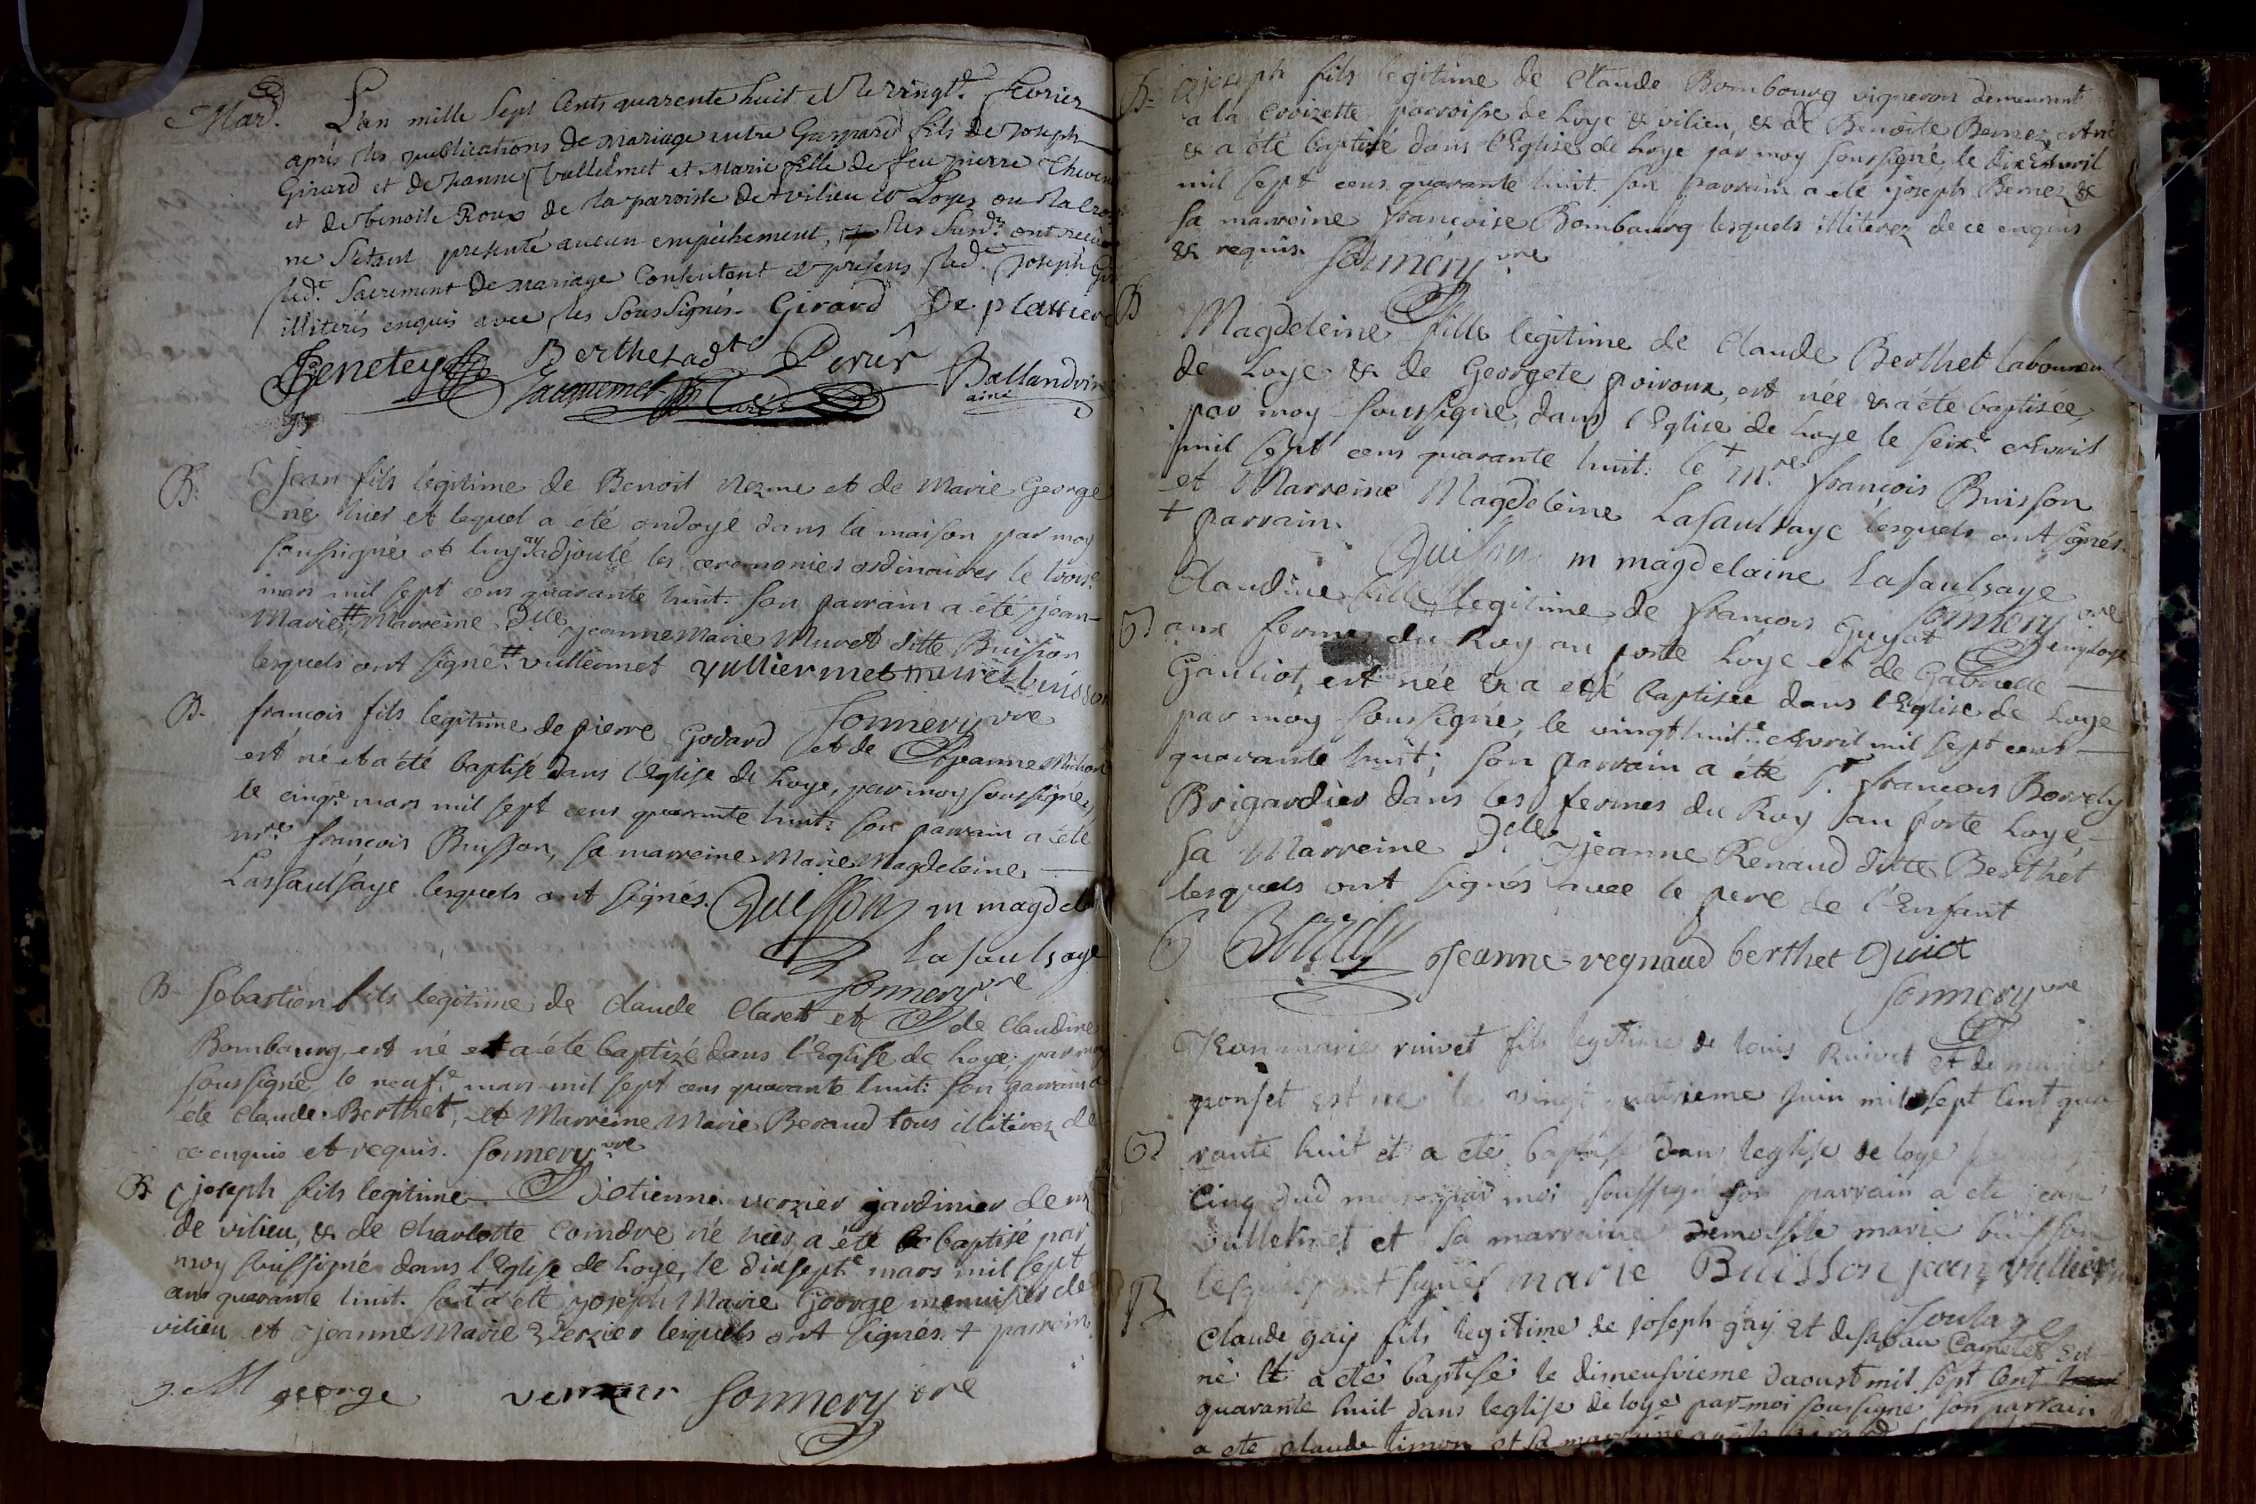 Mar. L'an mille sept cents quarente huit et le vingt.e fevrier
après les publications de mariage entre Gaspard fils de joseph
Girard et de jeanne Vullelmet et Marie fille de feu pierre
et de benoite Roux de la paroisse de vilieu et Loyes ou
ne s'etant presenté aucun empêchement, les susd.ts ont
led.t sacrement de mariage consentent et présens led.t joseph
illiterés enquis avec les soussignés. Girard De plattiere
Genetey Berthet adt Perier Ballandrin
Jacquemet ainé
B. jean fils légitime de Benoit et de Marie George
né hier et lequel a été ondoyé dans la maison par moy
soussigné et luy ay adjouté les ceremonies ordinaires le trois.e
mars mil sept cens quarante huit. son parrain a été jean-
Marie # Marreine D.lle jeanne Marie Muret ditte Buisson
lesquels ont signé. # vulliermet vulliermet muret buisson
sonnery vre
B. françois fils legitime de pierre Godard et de jeanne
est né et a été baptisé dans l'Eglise de Loye, par moy soussigné,
le cinq.e mars mil sept cens quarante huit: son parrain a été
m.re françois Buisson, sa marreine Marie Magdeleine
Lassaulsaye lesquels ont signés. Buisson m magdel
la saulsaye
sonnery vre
B. sebastien fils legitime de claude Claret et de claudine
Bombourg, est né et a été baptizé dans l'Eglise de Loye; par moy
soussigné le neuf.e mars mil sept cens quarante huit: son parrain a
été claude Berthet, et Marreine Marie Beraud tous illiterez de
ce enquis et requis. sonnery vre
B. joseph fils legitime d'etienne verzier jardinier de
de vilieu, & de charlotte Coindre né hier a été baptisé par
moy soussigné dans l'Eglise de Loye, le dixsept.e mars mil sept
cens quarante huit. son + a été joseph Marie George menuisier de
vilieu et jeanne Marie Verzier lesquels ont signés. + parrein
j M george verzier sonnery vre
B. joseph fils legitime de Claude Bombourg vigneron demeurant
a la Croizette parroisse de Loye & vilieu, & de Benoite Bernez, est né
& a été baptisé dans l'Eglise de Loye par moy soussigné, le avril
mil sept cens quarante huit. son parrain a été joseph Bernez &
sa marreine françoise Bombourg lesquels illiterez de ce enquis
& requis. sonnery vre
B Magdeleine fille legitime de Claude Berthet laboureur
de Loye & de Georgete poiroux, est née & a été baptisée,
par moy soussigné, dans l'Eglise de Loye le seiz.e avril
mil sept cens quarante huit. le + m.re françois Buisson
et Marreine Magdeleine Lasaulsaye lesquels ont signés.
+ parrain. Buisson m magdelaine lasaulsaye
sonnery vre
B Claudine fille legitime de françois Guyot employé
aux fermes du Roy au poste Loye et de Gabrielle
Gauliot, est née & a été baptisée dans l'Eglise de Loye
par moy soussigné, le vingt huit.e avril mil sept cent
quarante huit; son parrain a été s.r françois Bordy
Brigardier dans les fermes du Roy au poste Loye,
sa Marreine D.elle jeanne Renaud ditte Berthet
lesquels ont signés avec le pere de l'Enfant
Bordy jeanne regnaud berthet
sonnery vre
jean marie ruivet fils legitime de louis Ruivet et de marie
ponset est né le vingt quatrieme juin mil sept cent qua
B rante huit et a eté baptisé dans leglise de loye
cinq dud mois par moi soussigné son parrain a ete jean
vullelmet et sa marraine demoiselle marie buisson
lesquels ont signés marie Buisson jean vullierm
soulages
B Claude gay fils legitime de joseph gay et de
né et a eté baptisé le dixneufvieme daoust mil sept cent
quarante huit dans leglise de loye par moi soussigné son parrain
a ete claude timon et sa marraine